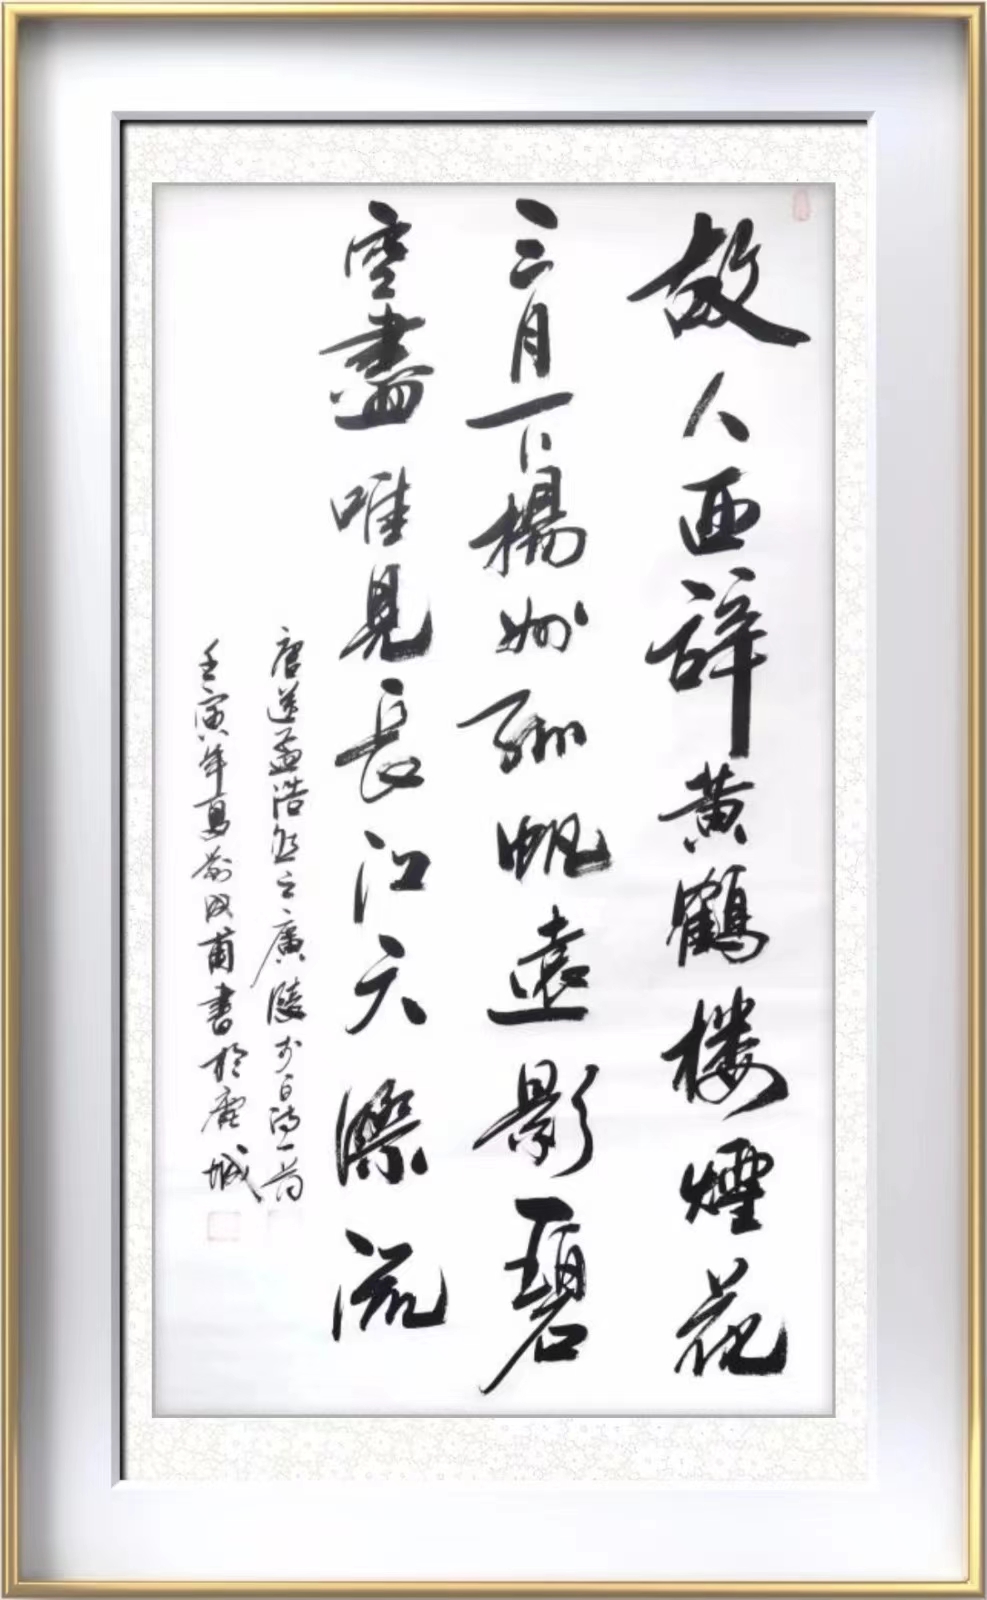 故人西辞黄鶴楼煙花
三月下楊州孤帆遠影碧
空盡唯見長江天際流
唐送孟浩然之廣陵李白詩一首
壬寅年夏 甫書於鹿城